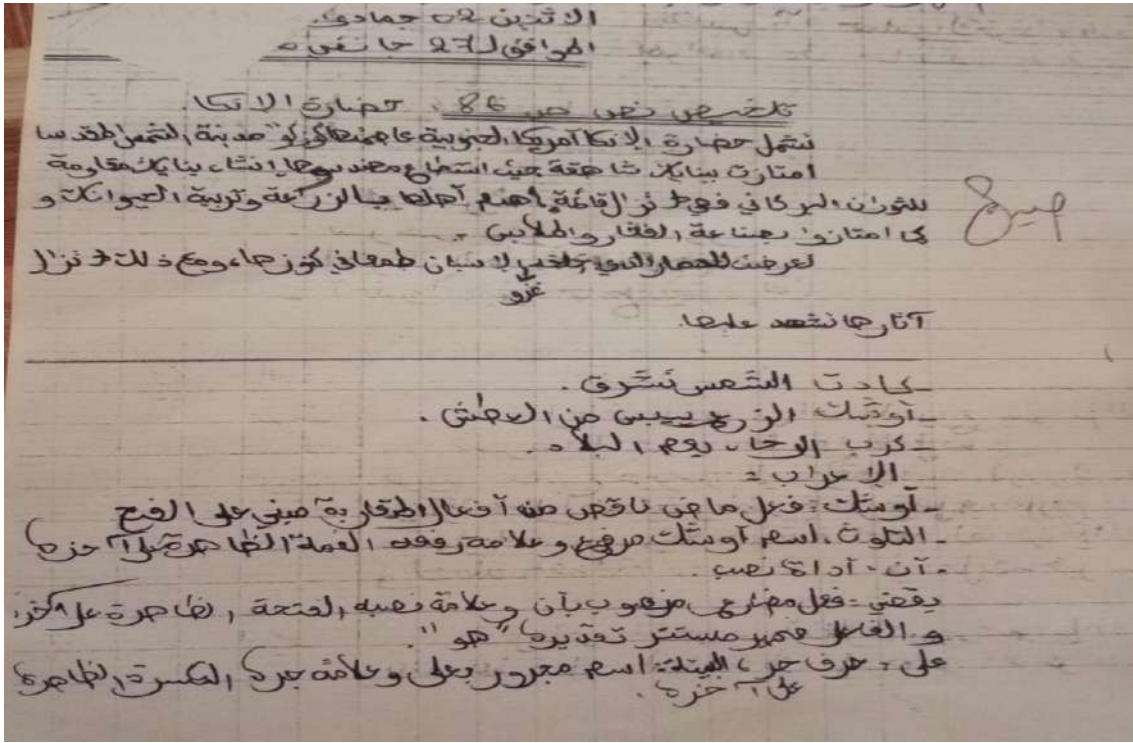 الاثنين 02 جمادى
الموافق لـ 27 جانفي
تلخيص نص ص 86 حضارة الانكا.
تشمل حضارة الانكا آمريكا الجنوبية عاصمتها كوزكو "مدينة الشمس المقدسة
امتازت ببنايات شاهقة حيث استطاع مهندسوها إنشاء بنايات مقاومة
للثوران البركاني فهي لا تزال قائمة، اهتم آهلها بالزراعة وتربية الحيوانات و
كما امتازوا بصناعة الفخار والملابس.
تعرضت للحصار الاسبان طمعا في كنوزها، ومع ذلك لا تزال
غزو
آثارها تشهد عليها.
صيح
- كادت الشمس تشرق.
- آوشك الزرع ييبس من العطش.
- كرب الرخاء يعم البلاد.
- الإعراب:
- آوشك: فعل ماض ناقص من آفعال المقاربة مبني على الفتح
- التلوث: اسم آوشك مرفوع وعلامة رفعه الضمة الظاهرة على آخره
- آن: أداة نصب.
يقضي: فعل مضارع منصوب بأن وعلامة نصبه الفتحة الظاهرة على آخره
و الفاعل ضمير مستتر تقديره "هو".
على: حرف جر، البيئة: اسم مجرور بعلى وعلامة جره الكسرة الظاهرة
على آخره.